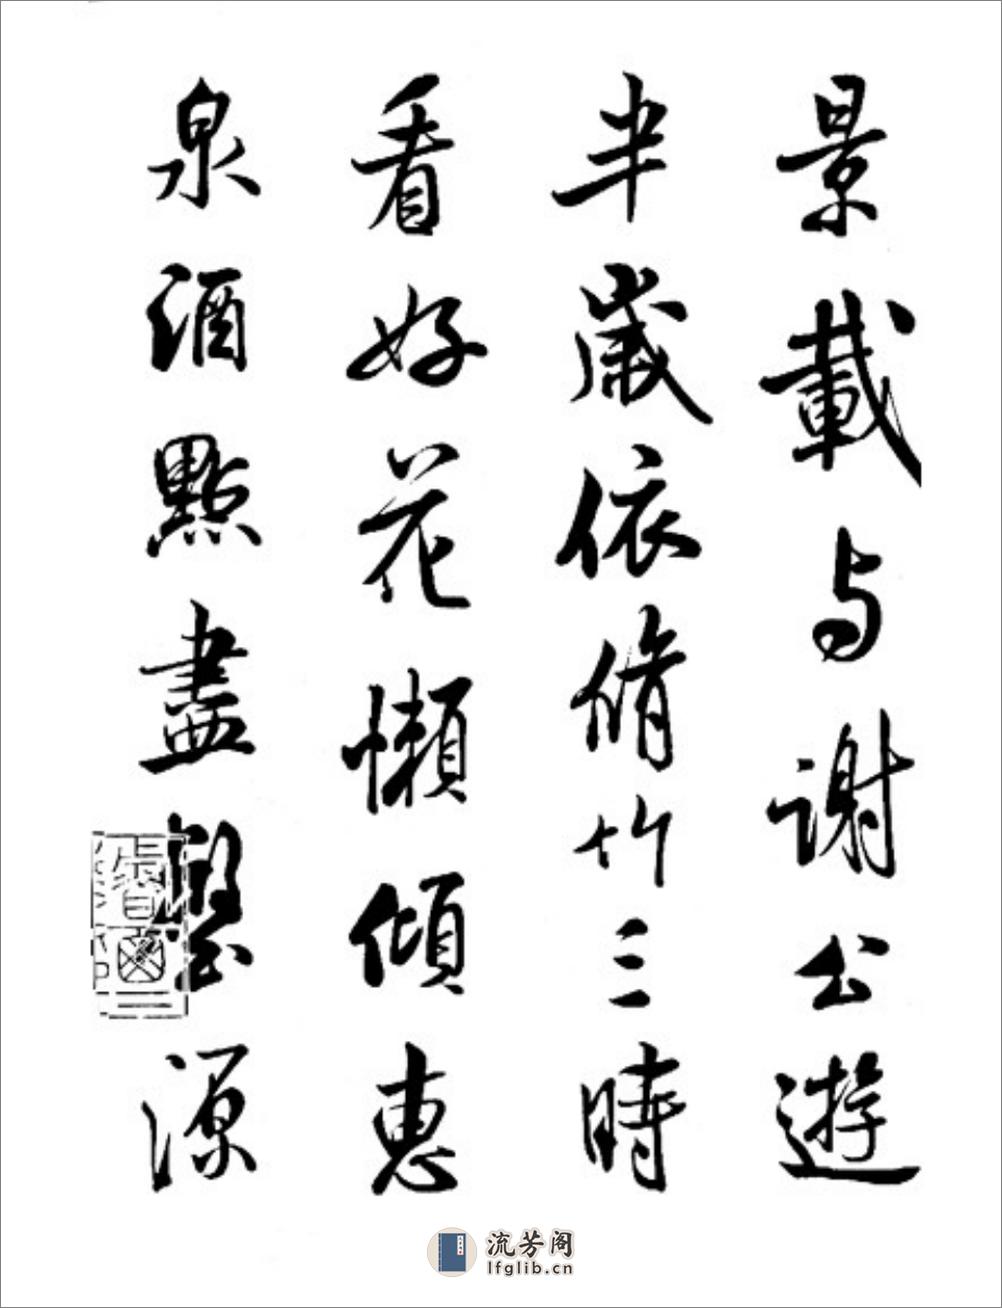 景載与謝公遊
半歲依脩竹三時
看好花懶傾惠
泉酒點盡壑源
流芳阁
lfglib.cn